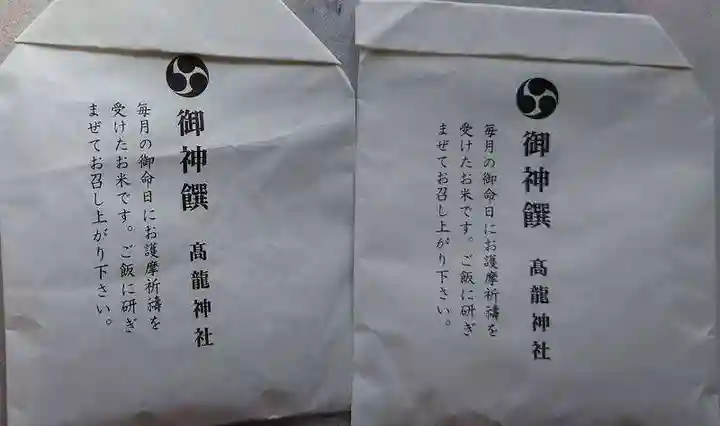 御神饌 髙龍神社
毎月の御命日にお護摩祈禱を
受けたお米です。ご飯に研ぎ
まぜてお召し上がり下さい。
御神饌 髙龍神社
毎月の御命日にお護摩祈禱を
受けたお米です。ご飯に研ぎ
まぜてお召し上がり下さい。